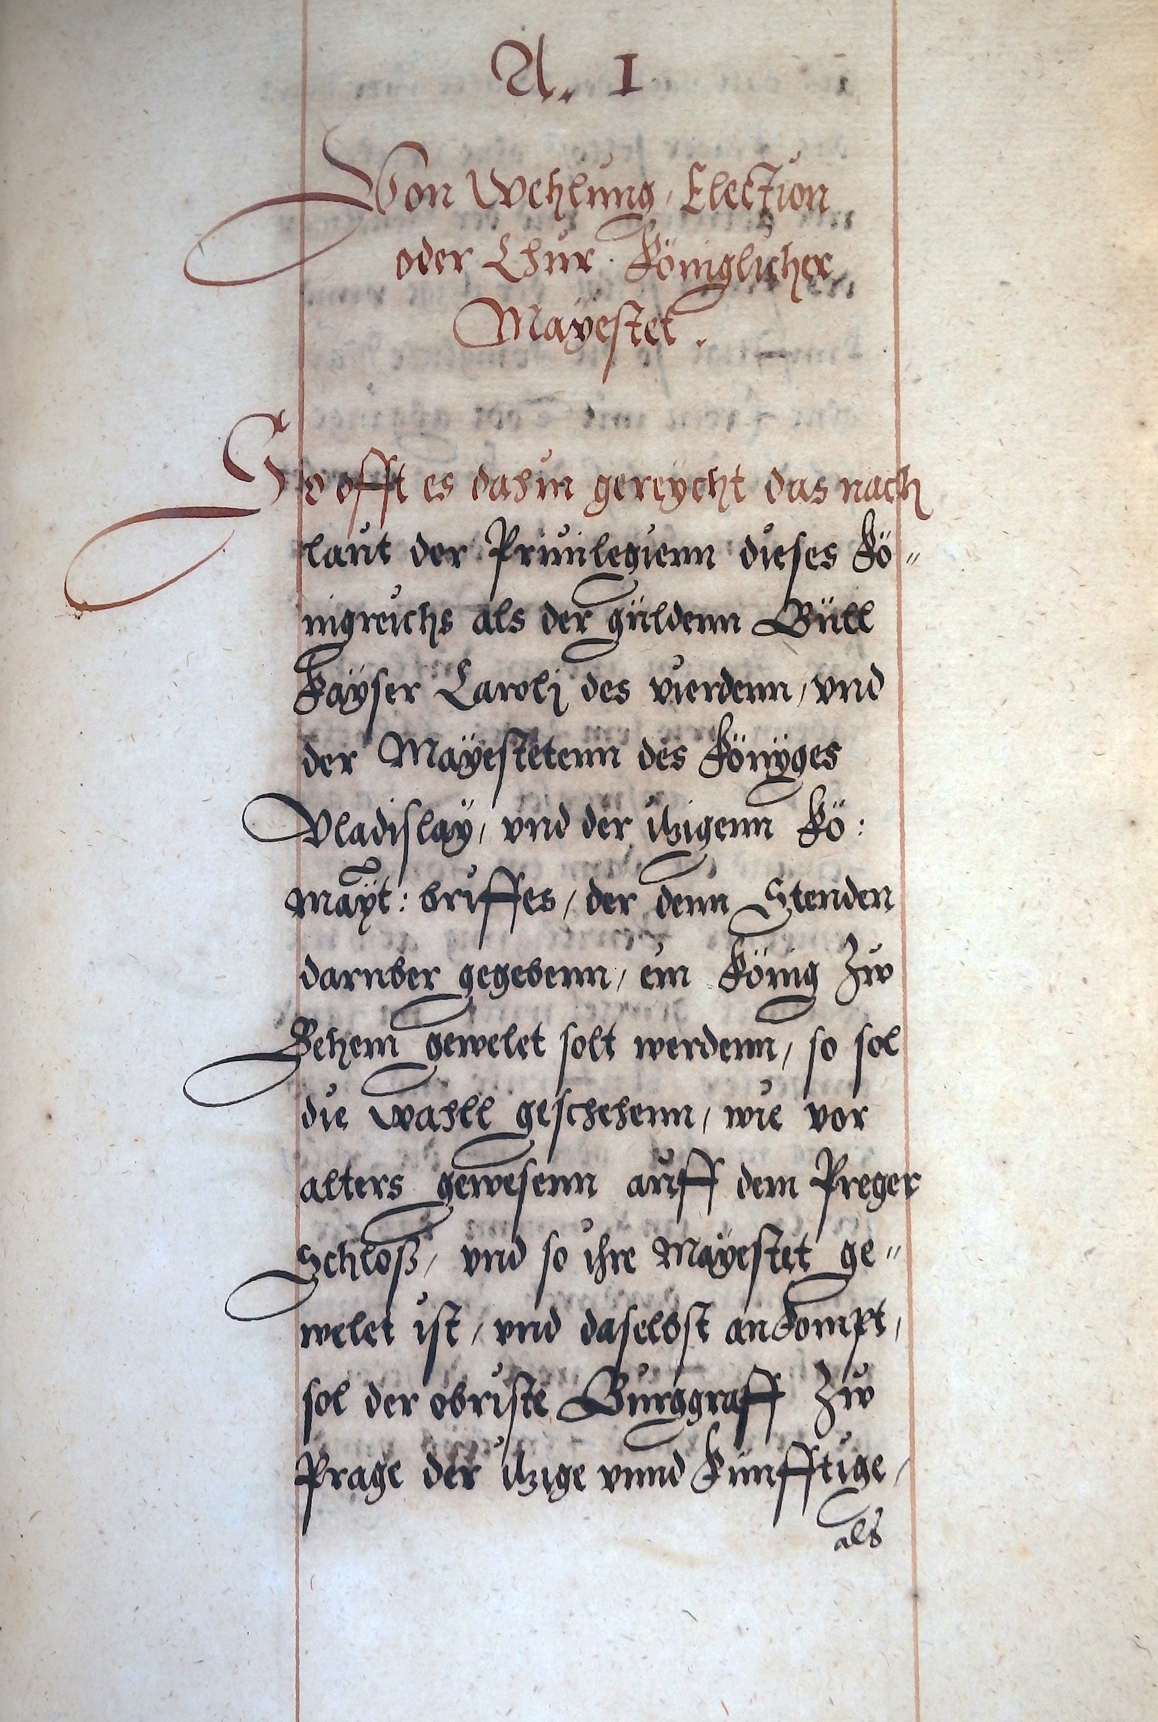 A. 1
Von Wehlung, Election
oder Chur Königlicher
Mayestet.
So offt es dahin gereycht das nach
laut der Priuilegienn dieses Kö-
nigreichs als der güldenn Büll
Kayser Carolj des vierdenn, vnd
der Mayestetenn des Könyges
Vladislay, vnd der itzigenn Kö:
Mayt: briffes, der denn Stenden
daruber gegebenn, ein König zw
Behem gewelet solt werdenn, so sol
die Wahll geschehenn, wie vor
alters gewesenn auff dem Preger
Schloß, vnd so ihre Mayestet ge-
welet ist, vnd daselbst ankompt,
sol der obriste Burggraff zw
Prage der itzige vnnd künfftige,
als